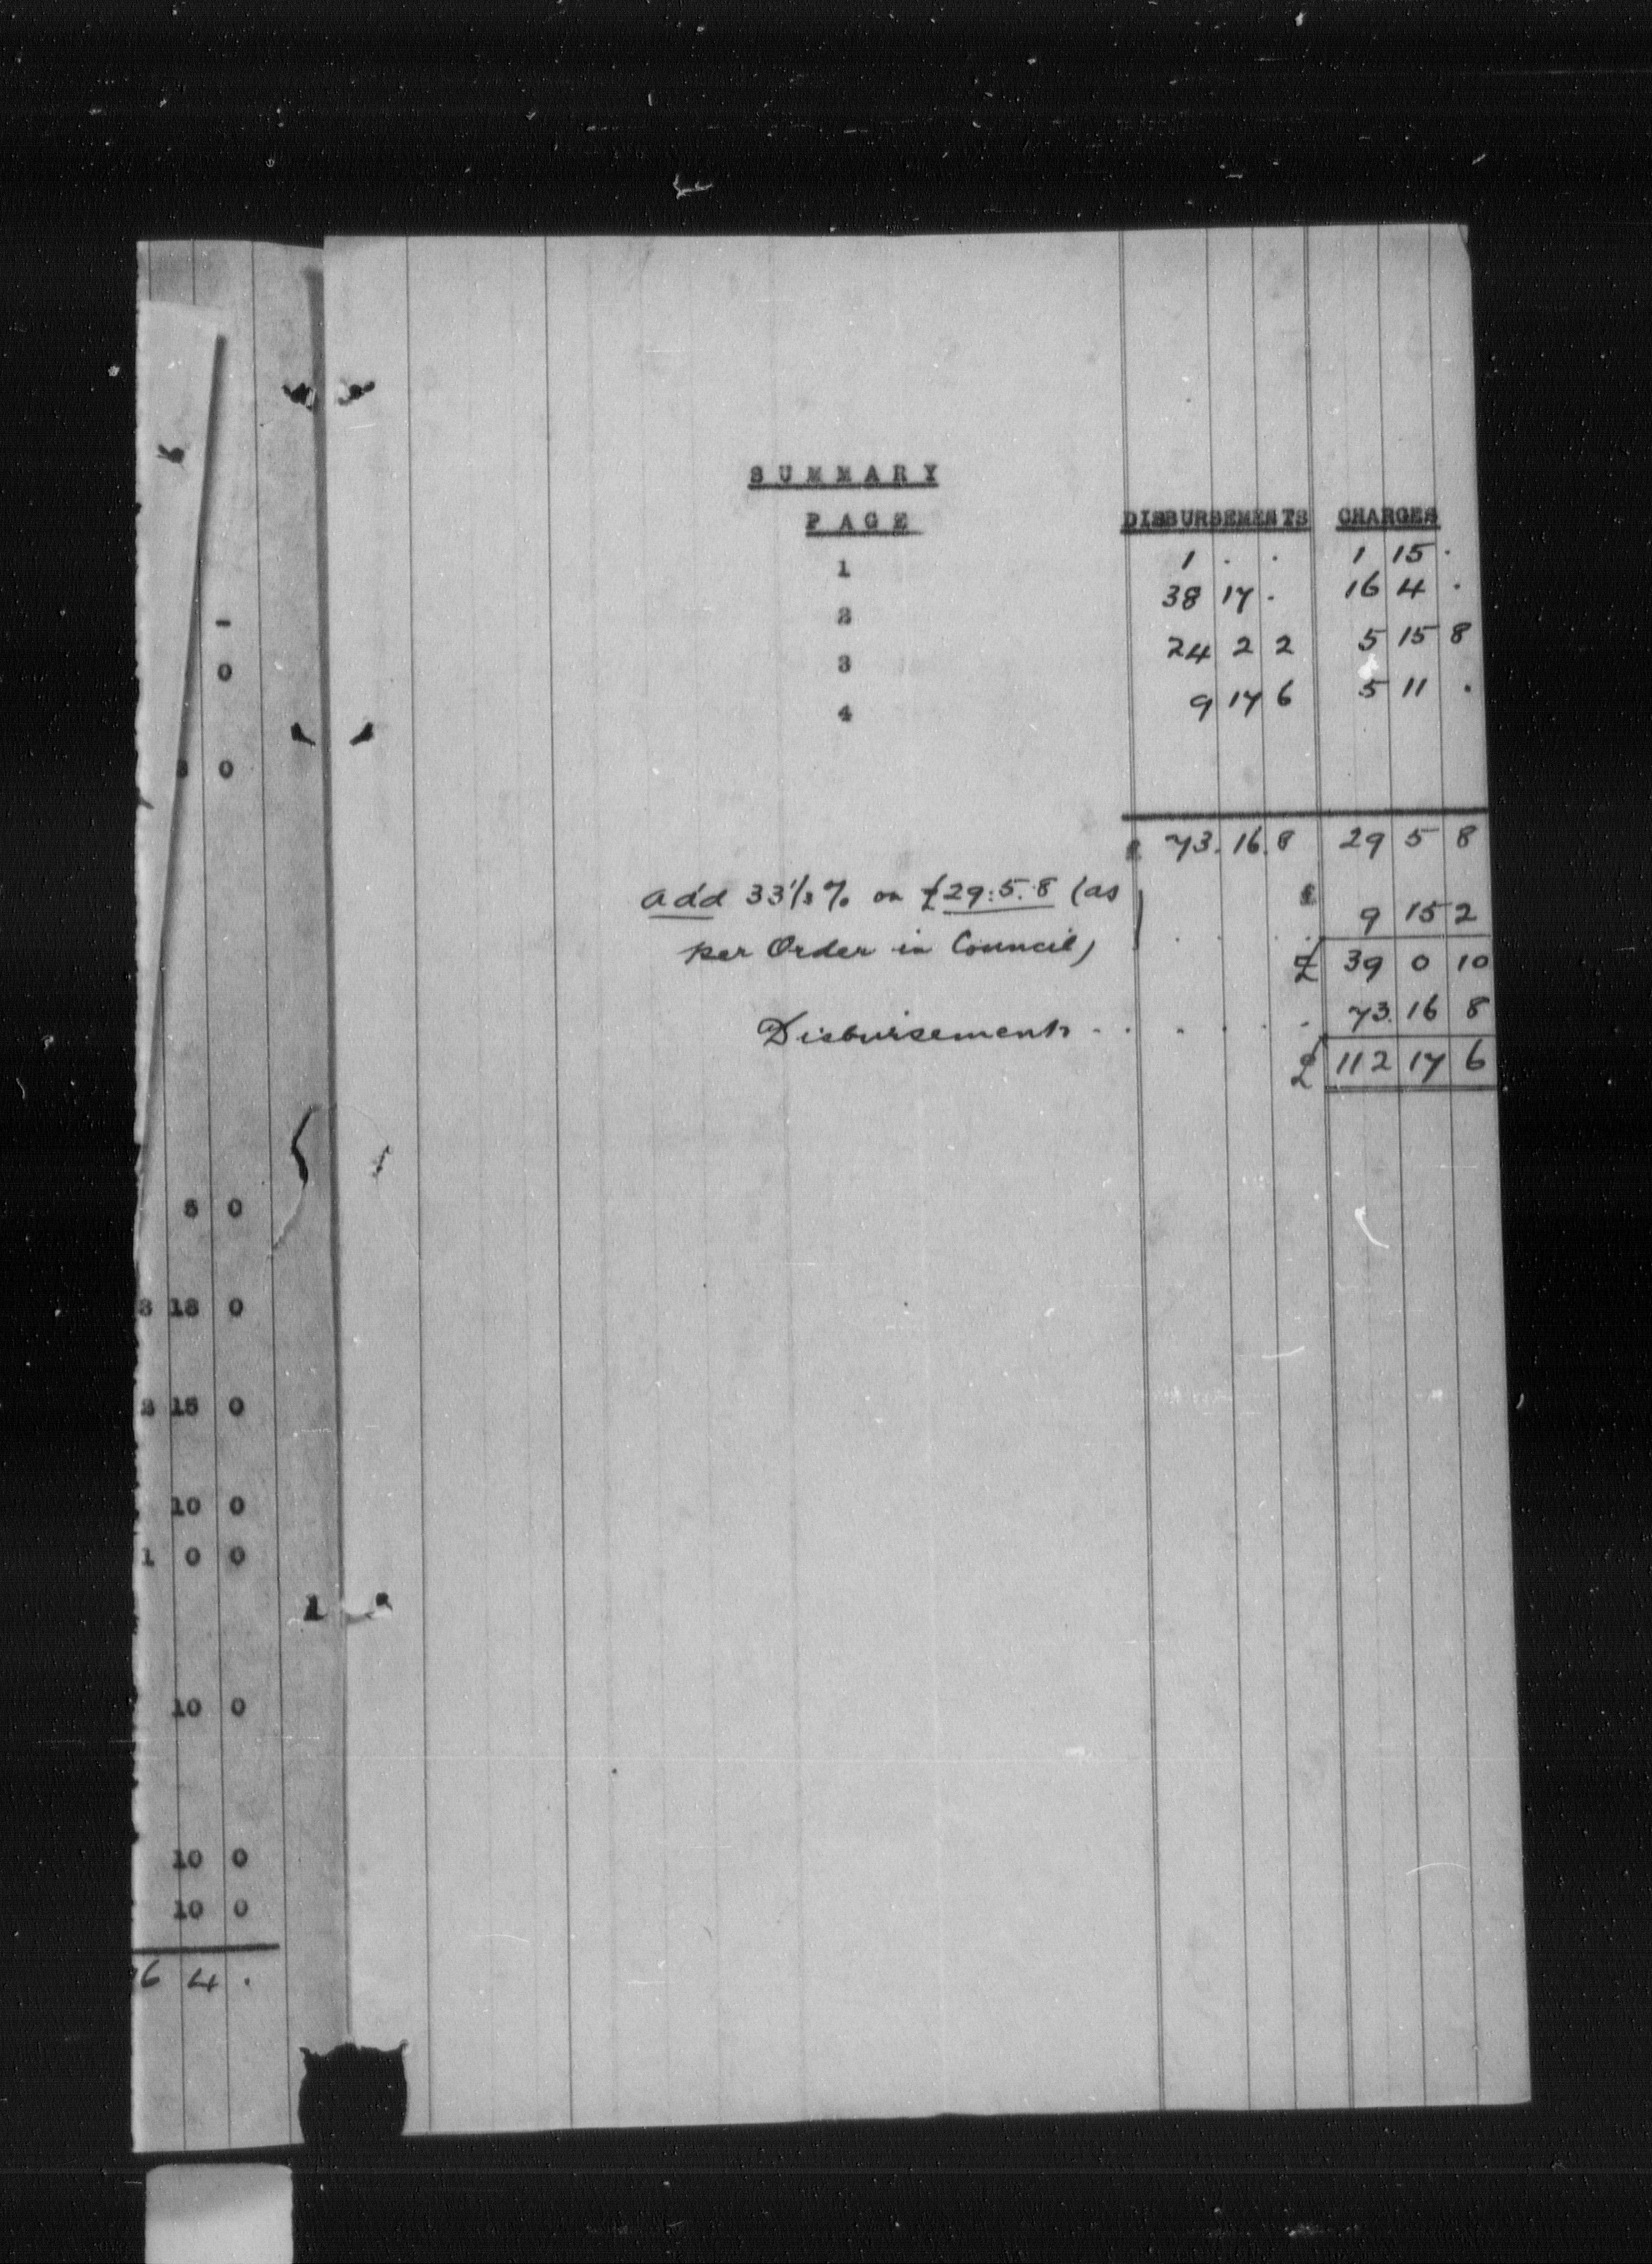 -
0
0
5 0
3 18 0
2 15 0
10 0
1 0 0
10 0
10 0
10 0
6 4 .
SUMMARY
PAGE DISBURSEMENTS CHARGES
1 1 . . 1 15 .
2 38 17 . 16 4 .
3 24 2 2 5 15 8
4 9 17 6 5 11 .
£ 73. 16. 8 29 5 8
add 33⅓% on £29:5.8 (as £ 9 15 2
per Order in Council) . . . £ 39 0 10
Disbursements . . . . . . 73. 16 8
£ 112 17 6